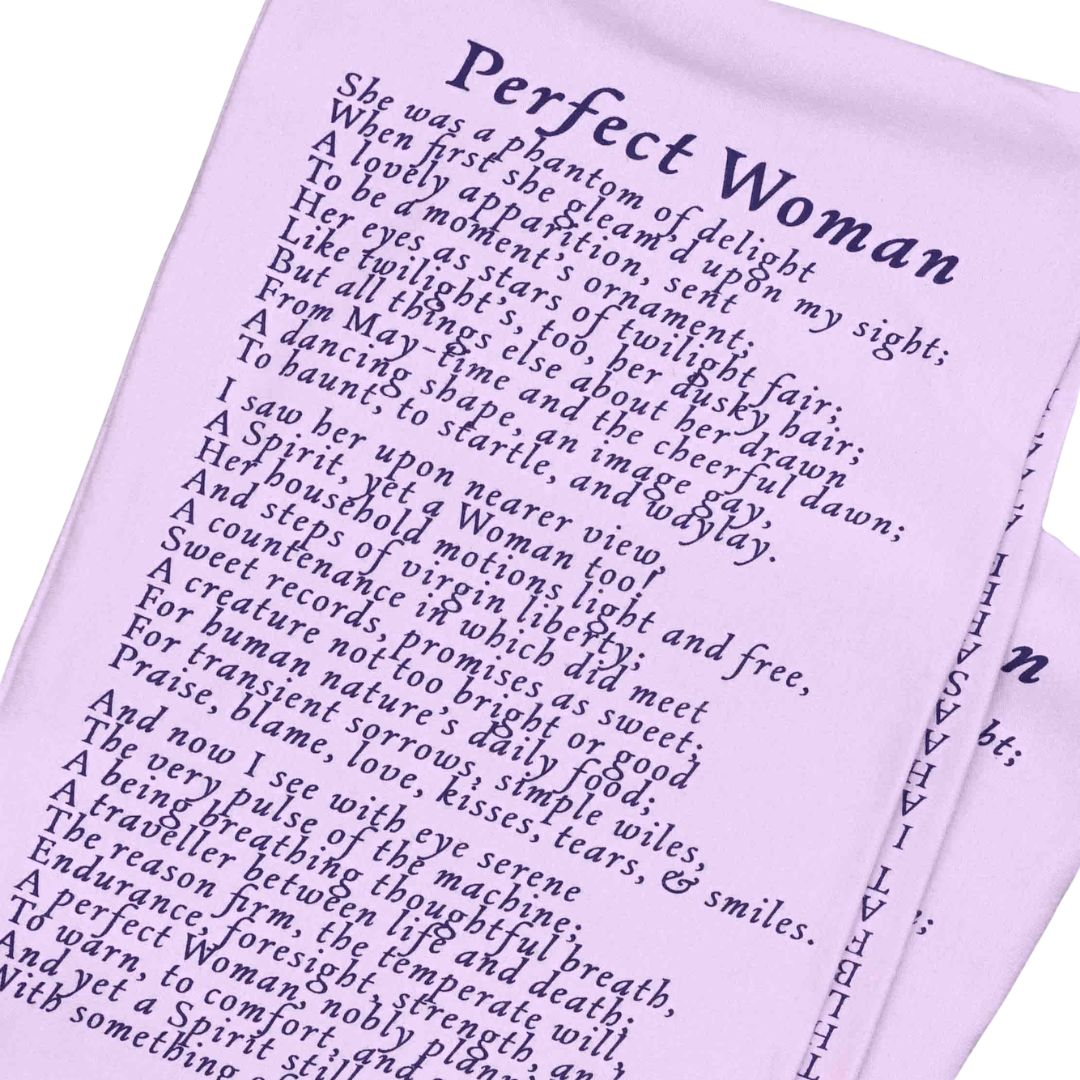 Perfect Woman
She was a phantom of delight
When first she gleam'd upon my sight;
A lovely apparition, sent
To be a moment's ornament;
Her eyes as stars of twilight fair;
Like twilight's, too, her dusky hair;
But all things else about her drawn
From May-time and the cheerful dawn;
A dancing shape, an image gay,
To haunt, to startle, and waylay.
I saw her upon nearer view,
A Spirit, yet a Woman too!
Her household motions light and free,
And steps of virgin liberty;
A countenance in which did meet
Sweet records, promises as sweet;
A creature not too bright or good
For human nature's daily food;
For transient sorrows, simple wiles,
Praise, blame, love, kisses, tears, & smiles.
And now I see with eye serene
The very pulse of the machine;
A being breathing thoughtful breath,
A traveller between life and death:
The reason firm, the temperate will,
Endurance, foresight, strength, an
A perfect Woman, nobly plann
To warn, to comfort, and
And yet a Spirit still
With something
n
ht;